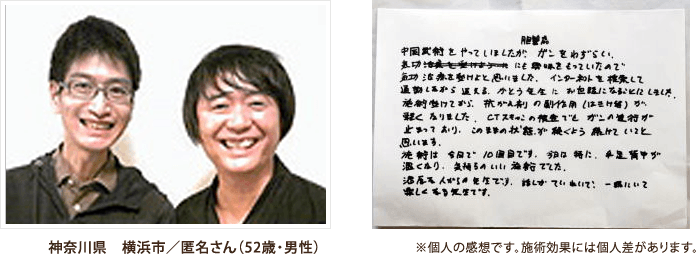 胆管癌
中国武術をやっていましたが、ガンをわずらい、
気功 にも興味をもっていたので
気功治療を受けようと思いました。インターネットを検索して
通勤しながら通える、かとう先生にお世話になることにしました。
施術受けてから、抗がん剤の副作用(はきけ等)が
軽くなりました。CTスキャンの検査でも ガンの進行が
止まっており、このままの状態が続くよう 続けていこうと
思います。
施術は今日で10回目です。今日は特に、手足背中が
温くなり、気持ちのいい施術でした。
温厚な人がらの先生です。話しかていねいで、一緒にいて
楽しくなる先生です。
神奈川県 横浜市／匿名さん（52歳・男性）
※個人の感想です。施術効果には個人差があります。